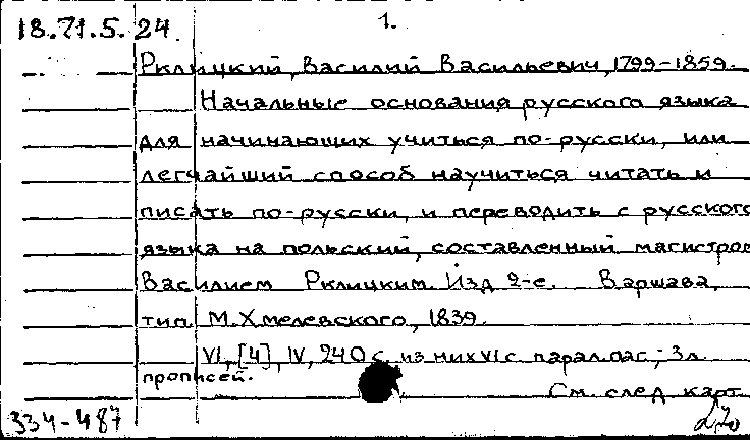 18.71.5.24.
1.
Рклицкий, Василий Васильевич, 1799-1859.
Начальные основания русского языка
для начинающих учиться по-русски, или
легчайший способ научиться читать и
писать по-русски, и переводить с русского
языка на польский, составленный магистром
Василием Рклицким. Изд. 2-е. Варшава,
тип. М. Хмелевского, 1839.
VI, [4], IV, 240 с., из них VI с. парал. паг.; 3 л.
прописей.
См. след. карт.
334-487